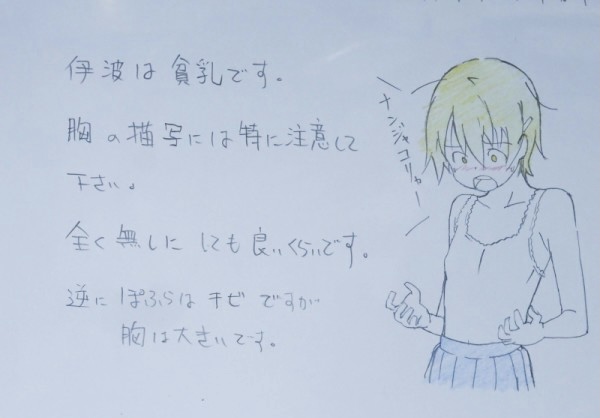 伊波は貧乳です。
胸の描写には特に注意して
下さい。
全く無しにしても良いくらいです。
逆にぽぷらはチビですが
胸は大きいです。
ナンジャコリャー